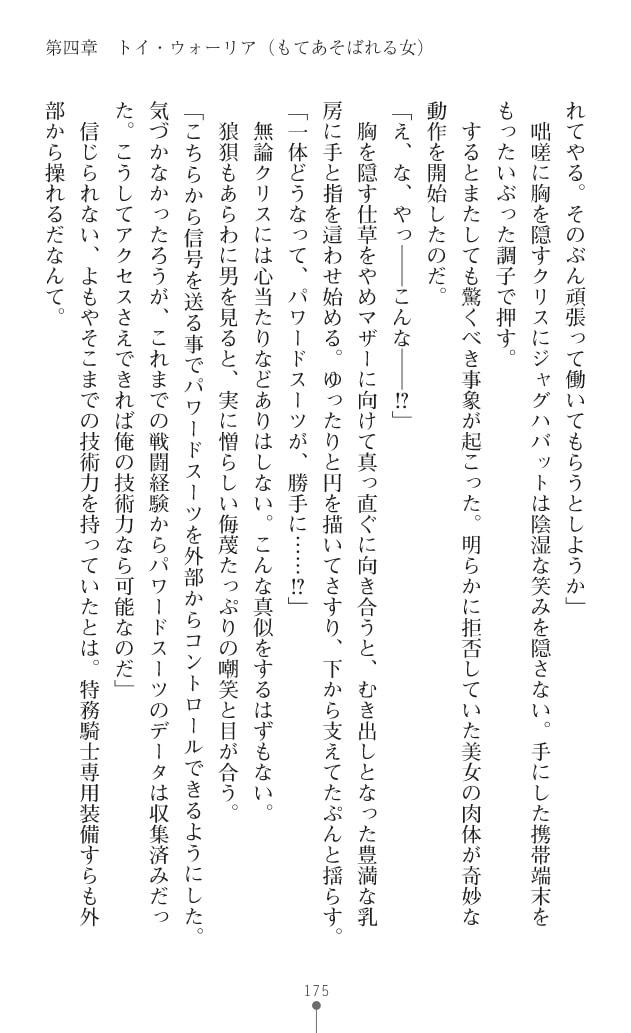 第四章　トイ・ウォーリア（もてあそばれる女）
れてやる。そのぶん頑張って働いてもらうとしようか」
　咄嗟に胸を隠すクリスにジャグハバットは陰湿な笑みを隠さない。手にした携帯端末を
もったいぶった調子で押す。
　するとまたしても驚くべき事象が起こった。明らかに拒否していた美女の肉体が奇妙な
動作を開始したのだ。
「え、な、やっ――こんな――!?」
　胸を隠す仕草をやめマザーに向けて真っ直ぐに向き合うと、むき出しとなった豊満な乳
房に手と指を這わせ始める。ゆったりと円を描いてさすり、下から支えてたぷんと揺らす。
「一体どうなって、パワードスーツが、勝手に……!?」
　無論クリスには心当たりなどありはしない。こんな真似をするはずもない。
　狼狽もあらわに男を見ると、実に憎らしい侮蔑たっぷりの嘲笑と目が合う。
「こちらから信号を送る事でパワードスーツを外部からコントロールできるようにした。
気づかなかったろうが、これまでの戦闘経験からパワードスーツのデータは収集済みだっ
た。こうしてアクセスさえできれば俺の技術力なら可能なのだ」
　信じられない、よもやそこまでの技術力を持っていたとは。特務騎士専用装備すらも外
部から操れるだなんて。
175